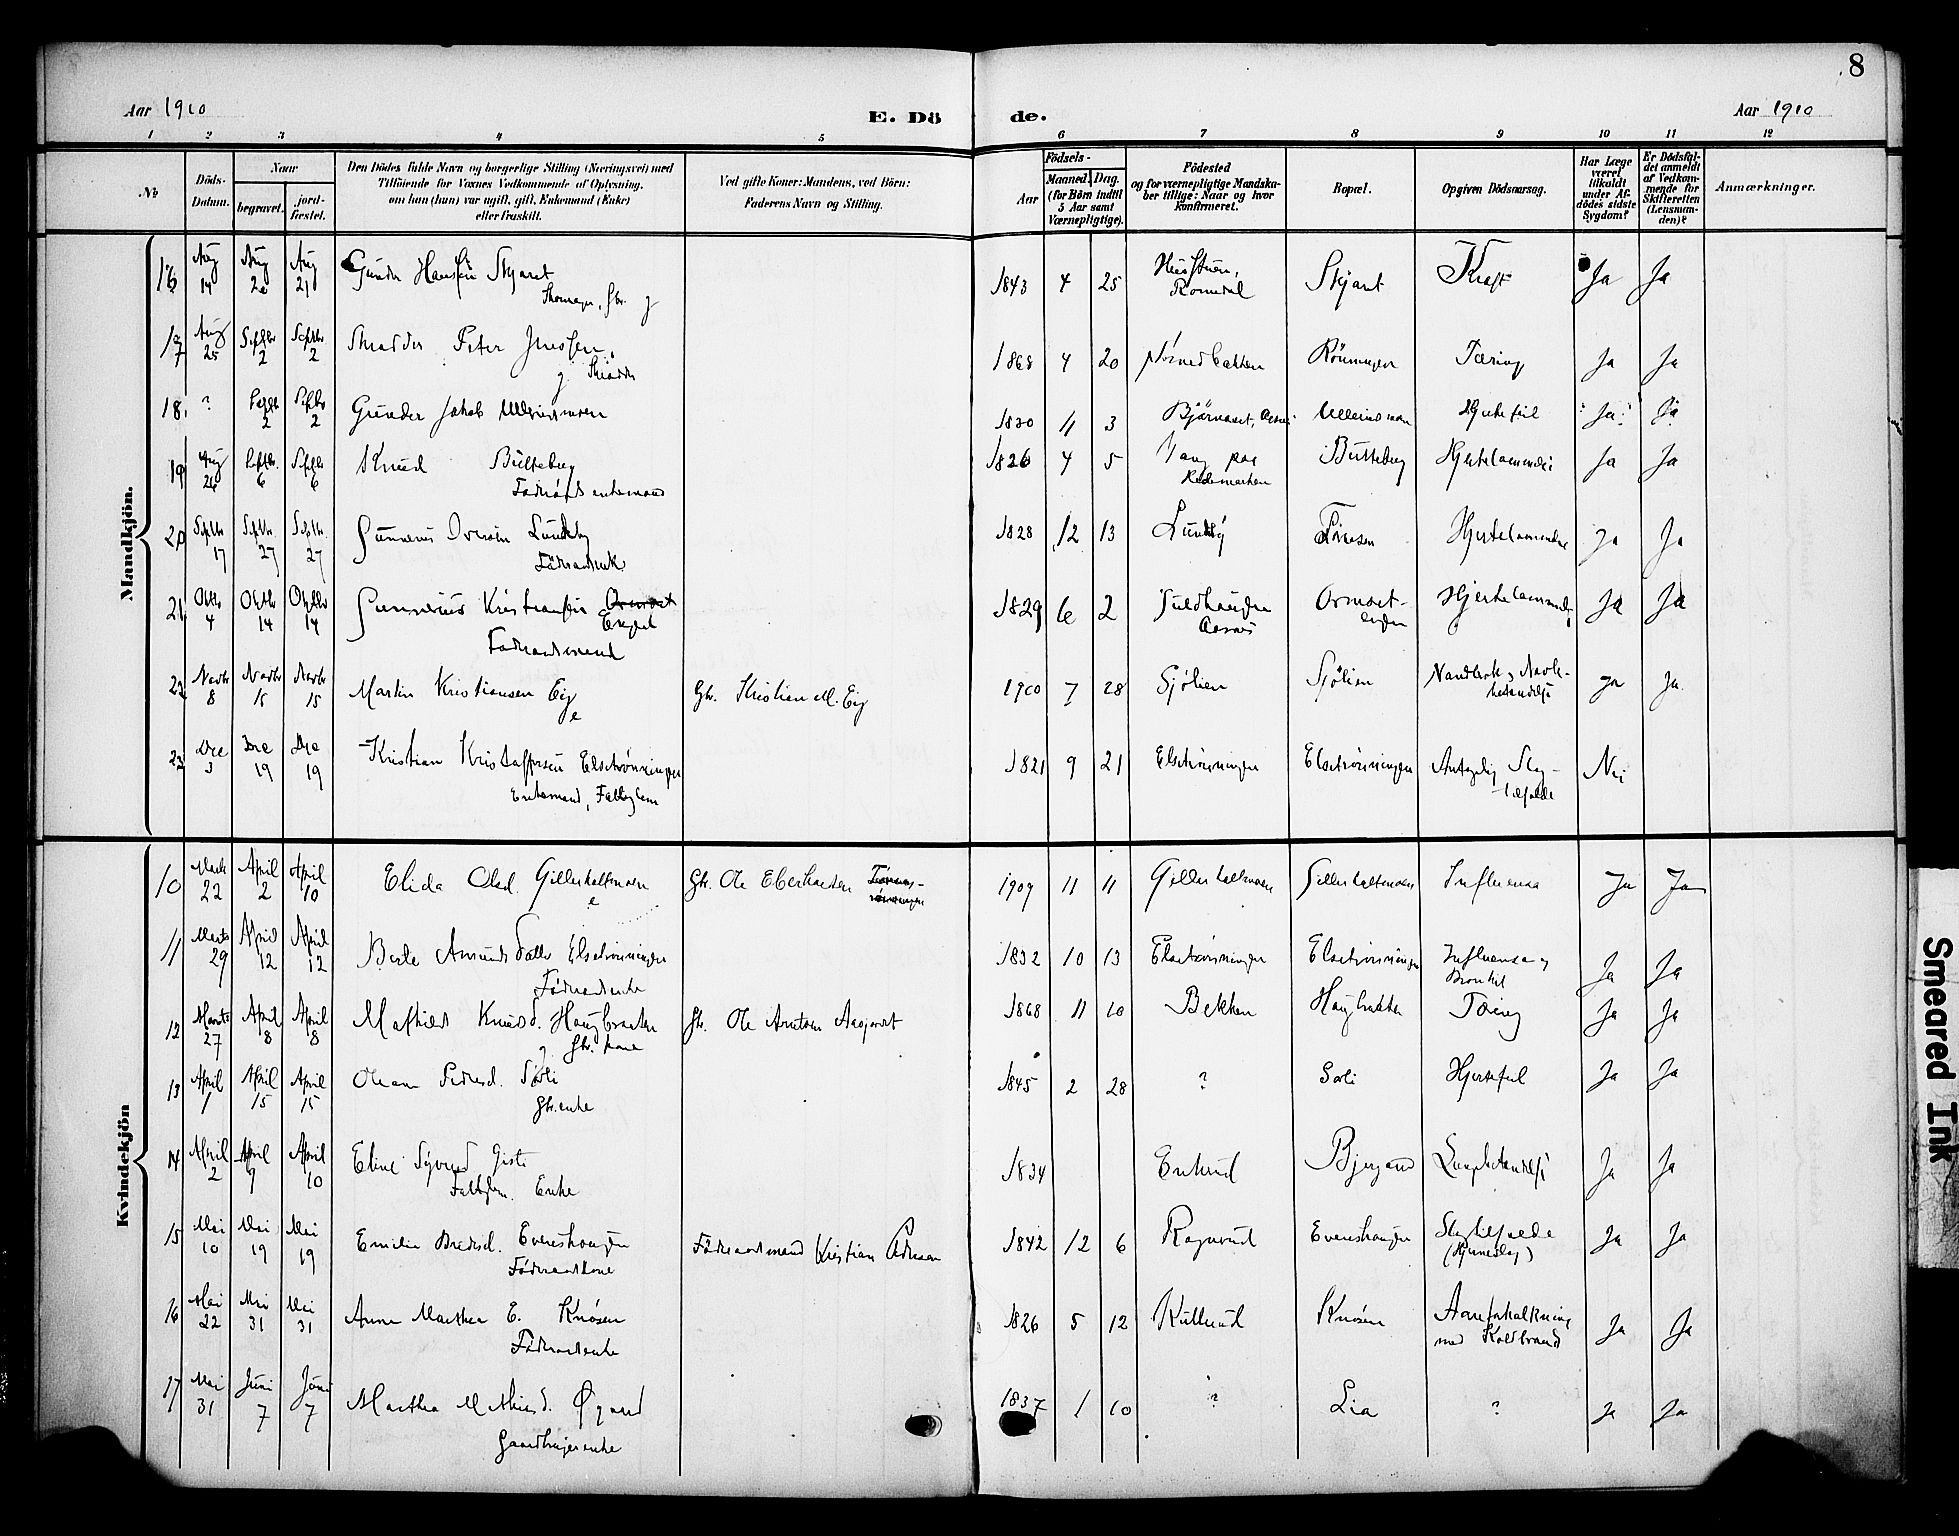 8
Aar 1910
E. Dö
de.
Aar 1910
1 2 3 4 5 6 7 8 9 10 11 12
No
Döds-Datum.
Naar
begravet.
jord-fæstet.
Den Dödes fulde Navn og borgerlige Stilling (Næringsvei) med
Tilföiende for Voxnes Vedkommende af Oplysning,
om han (hun) var ugift, gift, Enkemand (Enke)
eller fraskilt.
Ved gifte Koner: Mandens, ved Börn:
Faderens Navn og Stilling.
Födsels-
Aar
Maaned. Dag.
(for Börn indtil
5 Aar samt
Værnepligtige).
Födested
og for værnepligtige Mandska-
ber tillige: Naar og hvor
konfirmeret.
Bopæl.
Opgiven Dödsaarsag.
Har Læge
været
tilkaldt
under Af-
dödes sidste
Sygdom?
Er Dödsfal-
det anmeldt
af Vedkom-
mende for
Skifteretten
(Lensman-
den)?
Anmærkninger.
Mandkjön.
16 Aug 14 Aug 20 Aug 21 Gunder Hansen Skjæret 1843 4 25 Romedal Kræft Ja Ja
17 Aug 25 Septbr 2 Septbr 2 Peter Jensen 1868 4 20 Rönningen Tæring Ja Ja
18 ? Septbr 2 Septbr 2 Gunder Jakob 1830 11 3 Hjertefeil Ja Ja
19 Aug 26 Septbr 6 Septbr 6 Knud Butteberg 1826 4 5 Vang paa Butteberg Hjertelammelse Ja Ja
Föderaads enkemand Hedemarken
20 Septbr 17 Septbr 27 Septbr 27 Gunerius Oversen Lundby 1828 12 13 Lundby Hjertelammelse Ja Ja
21 Oktbr 4 Oktbr 14 Oktbr 14 Gunnerius Kristiansen Ormset 1829 6 2 Ormset- Hjertelammelse Ja Ja
Enget Aasnes engen
Föderaadsmand
22 Novbr 8 Novbr 15 Novbr 15 Martin Kristiansen Eig Gbr. Kristian M. Eig 1900 7 28 Sjölien Sjölien Ja Ja
23 Dec 3 Dec 19 Dec 19 Kristian Kristoffersen Elsetrönningen 1821 9 21 Elsetrönningen Elsetrönningen Antagelig Slag- Nei
Enkemand, Fattiglem tilfælde
Kvindekjön
10 Marts 22 April 2 April 10 Elida Olsd. Gillerholtmoen Gbr. Ole Eberhardsen 1909 11 11 Gillerholtmoen Gillerholtmoen Influensa Ja Ja
11 Marts 29 April 12 April 12 Berte Amundsdatter Elsetrönningen 1832 10 13 Elsetrönningen Elsetrönningen Influensa og Ja Ja
Föderaadsenke Bronkit
12 Marts 27 April 8 April 8 Mathilde Knudsd. Haugbratten Gbr. Ole Antons 1868 11 10 Bekken Tæring Ja Ja
Gbr. kone
13 April 1 April 15 April 15 Oleane Pedersd. Sorli 1845 2 28 ? Sorli Hjertefeil Ja Ja
Gbr.enke
14 April 2 April 9 April 10 Eline Syversd 1834 Enkerud Lungebetændelse Ja Ja
Fattiglem. Enke
15 Mai 10 Mai 19 Mai 19 Emilie Bredesd. Evenshaugen Föderaadsmand Kristian Pedersen 1842 12 6 Evenshaugen Slagtilfælde Ja Ja
Föderaadskone (Hjerneslag)
16 Mai 22 Mai 31 Mai 31 Anne Marthea E. Knösen 1826 5 12 Kulterud Knösen Aareforkalkning Ja Ja
Föderaadsenke med Koldbrand
17 Mai 31 Juni 7 Juni 7 Marthea Mathisd. Øgaard 1837 1 10 ? Lia ? Ja Ja
Gaardbrugerenke
Smeared Ink